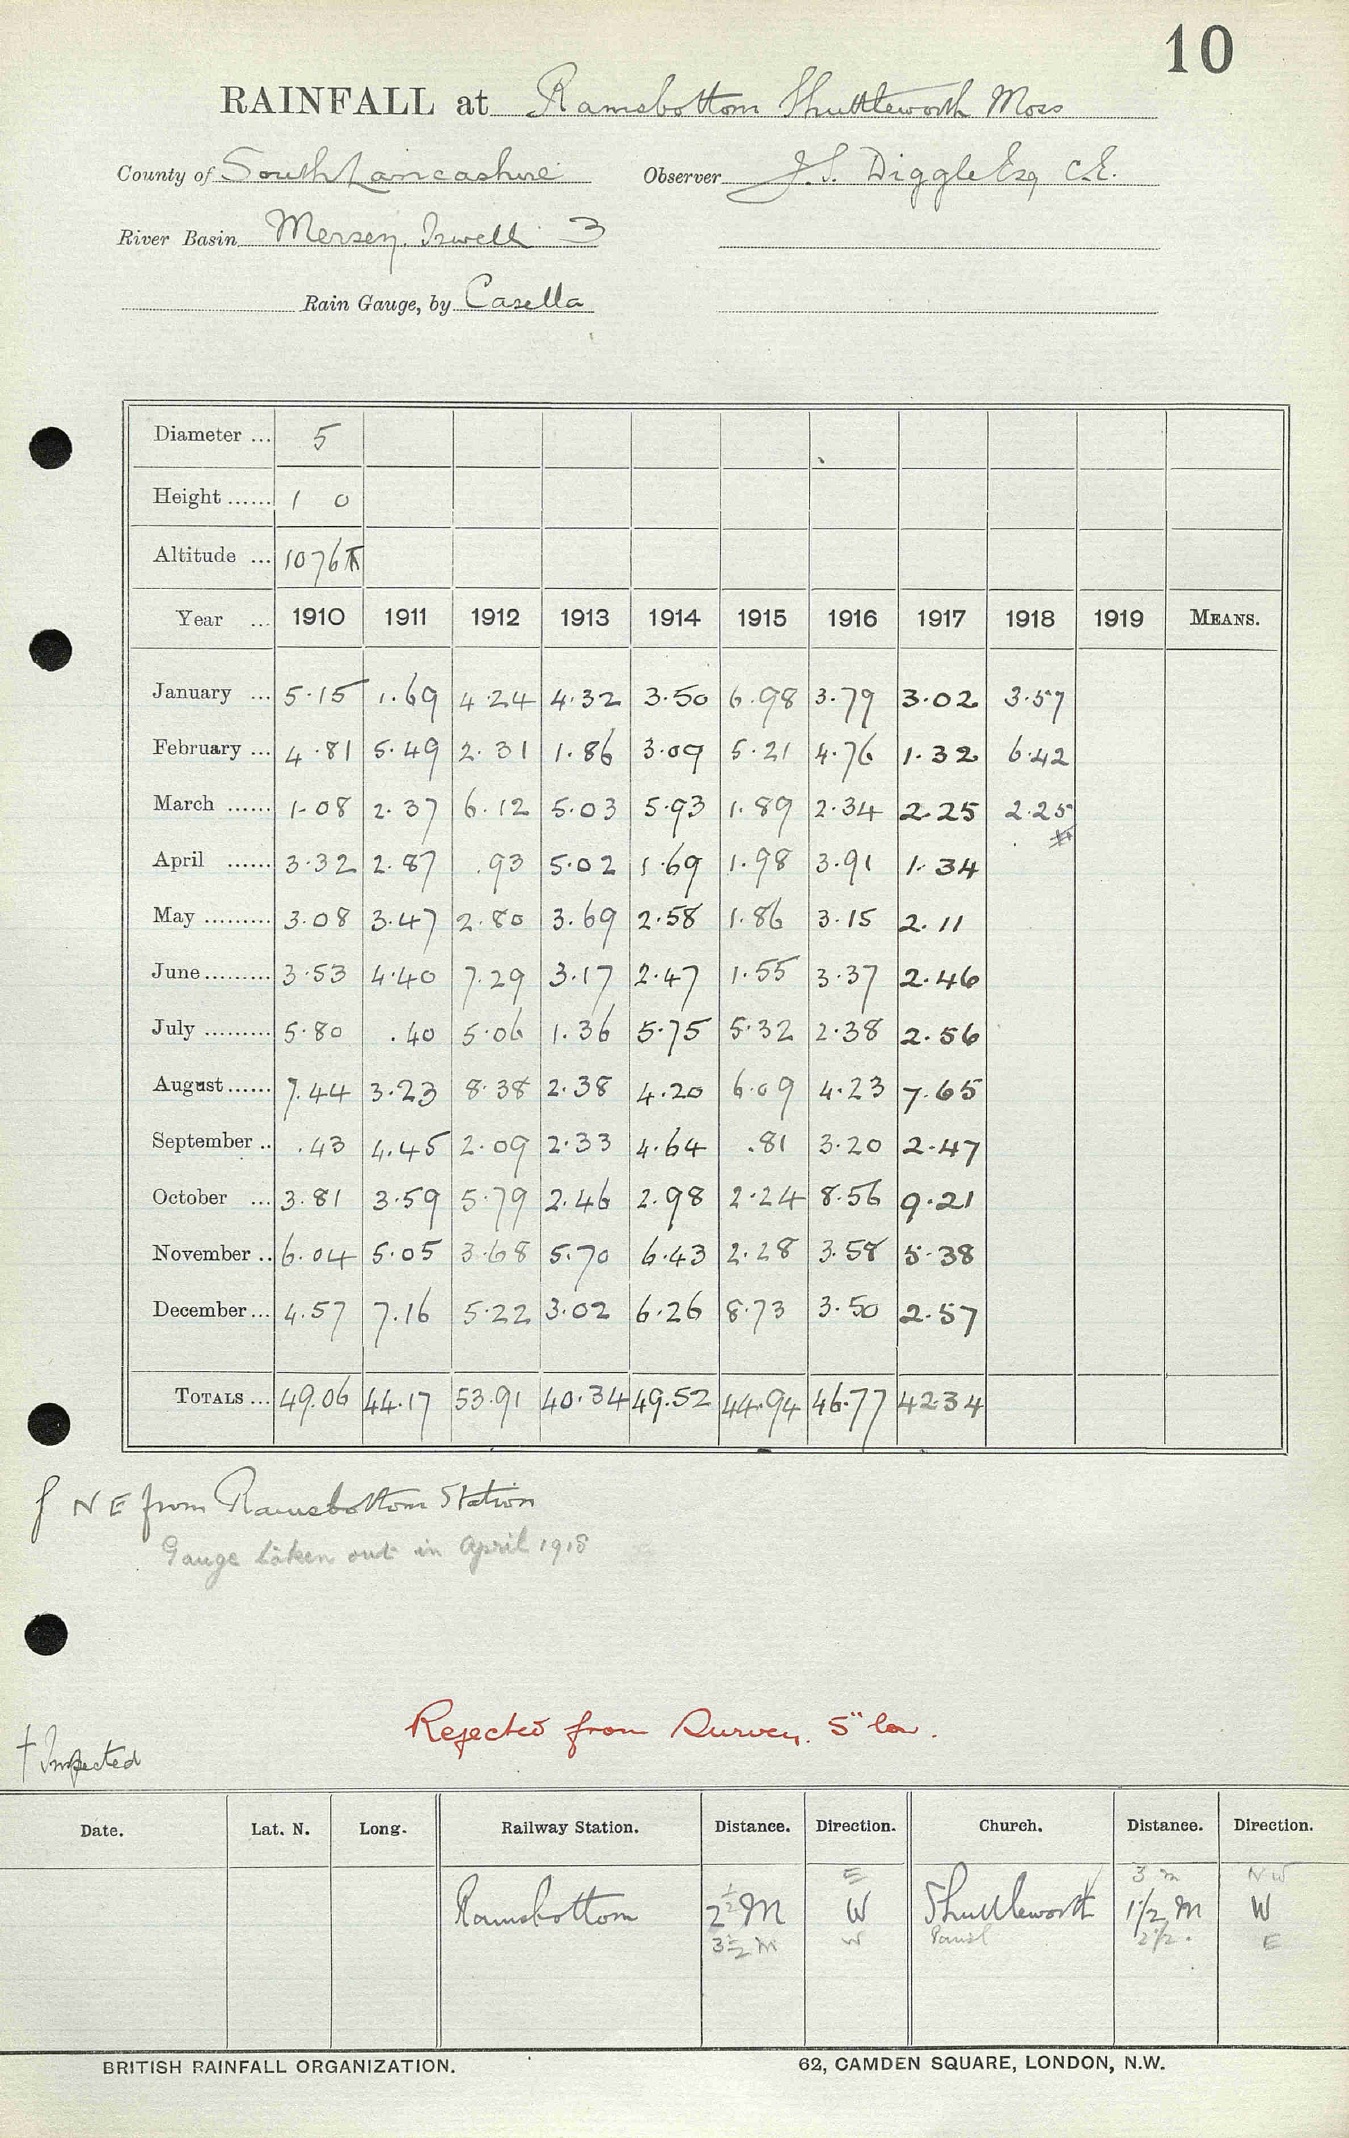 10
RAINFALL at Ramsbottom Shuttleworth Moss
County of South Lancashire Observer J.S. Diggle Esq C.E.
River Basin Mersey. Irwell 3
Rain Gauge, by Casella
Diameter ... 5
Height ...... 1 0
Altitude ... 1076 T
Year ... 1910 1911 1912 1913 1914 1915 1916 1917 1918 1919 MEANS.
January ... 5.15 1.69 4.24 4.32 3.50 6.98 3.79 3.02 3.57
February ... 4.81 5.49 2.31 1.86 3.09 5.21 4.76 1.32 6.42
March ...... 1.08 2.37 6.12 5.03 5.93 1.89 2.34 2.25 2.25
April ...... 3.32 2.87 .93 5.02 1.69 1.98 3.91 1.34
May ......... 3.08 3.47 2.80 3.69 2.58 1.86 3.15 2.11
June ......... 3.53 4.40 7.29 3.17 2.47 1.55 3.37 2.46
July ......... 5.80 .40 5.06 1.36 5.75 5.32 2.38 2.56
August ...... 7.44 3.23 8.38 2.38 4.20 6.09 4.23 7.65
September .. .43 4.45 2.09 2.33 4.64 .81 3.20 2.47
October ... 3.81 3.59 5.79 2.46 2.98 2.24 8.56 9.21
November .. 6.04 5.05 3.68 5.70 6.43 2.28 3.58 5.38
December ... 4.57 7.16 5.22 3.02 6.26 8.73 3.50 2.57
TOTALS ... 49.06 44.17 53.91 40.34 49.52 44.94 46.77 42.34
f N E from Ramsbottom Station
Gauge taken out in April 1918
Rejected from Survey. 5" low.
† Inspected
Date. Lat. N. Long. Railway Station. Distance. Direction. Church. Distance. Direction.
E 3 m NW
Ramsbottom 2½ M W Shuttleworth 1½ M W
3½ M W Parish 2½. E
BRITISH RAINFALL ORGANIZATION. 62, CAMDEN SQUARE, LONDON, N.W.